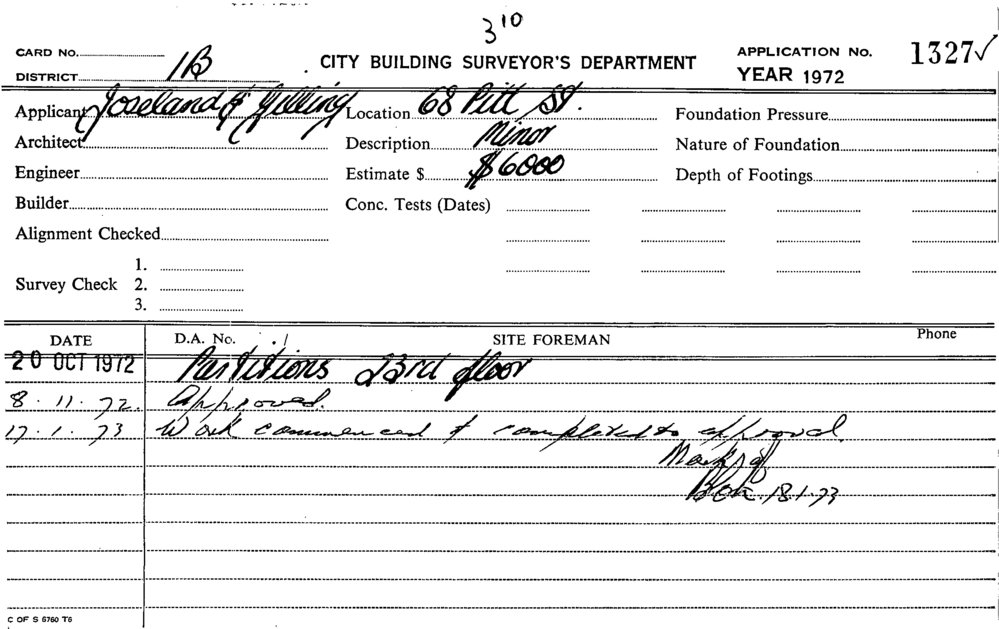 3¹⁰
CARD No. CITY BUILDING SURVEYOR'S DEPARTMENT APPLICATION No. 1327✓
DISTRICT 1B YEAR 1972
Applicant Joseland & Gilling Location 68 Pitt St. Foundation Pressure
Architect Description Minor Nature of Foundation
Engineer Estimate $ $6000 Depth of Footings
Builder Conc. Tests (Dates)
Alignment Checked
1.
Survey Check 2.
3.
DATE D.A. No. SITE FOREMAN Phone
20 OCT 1972 Partitions 23rd floor
8.11.72. Approved.
17.1.73 Work commenced & completed to approval.
Mark off
18.1.73
C OF S 6760 T6